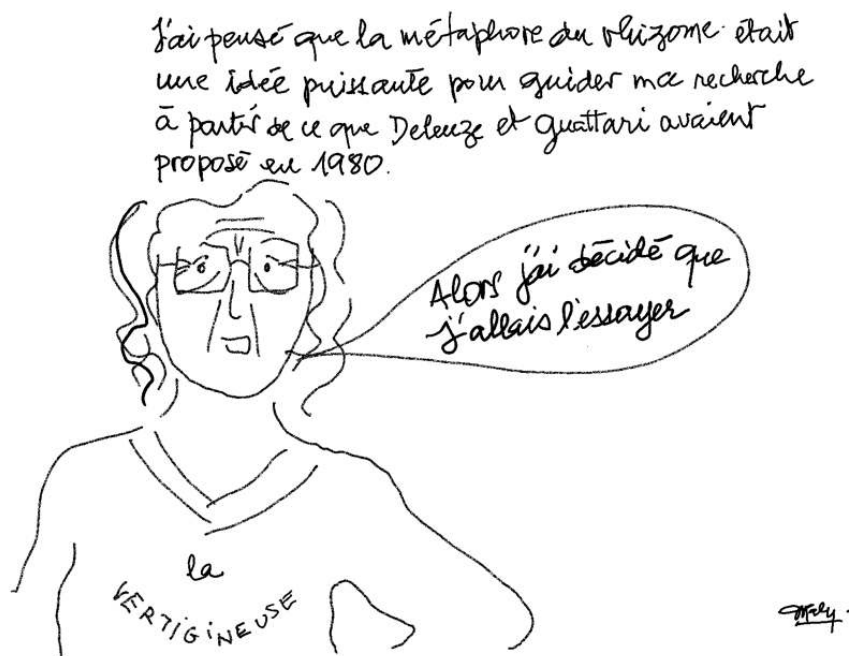 J'ai pensé que la métaphore du rhizome était
une idée puissante pour guider ma recherche
à partir de ce que Deleuze et Guattari avaient
proposé en 1980.
Alors j'ai décidé que
j'allais l'essayer
la
VERTIGINEUSE